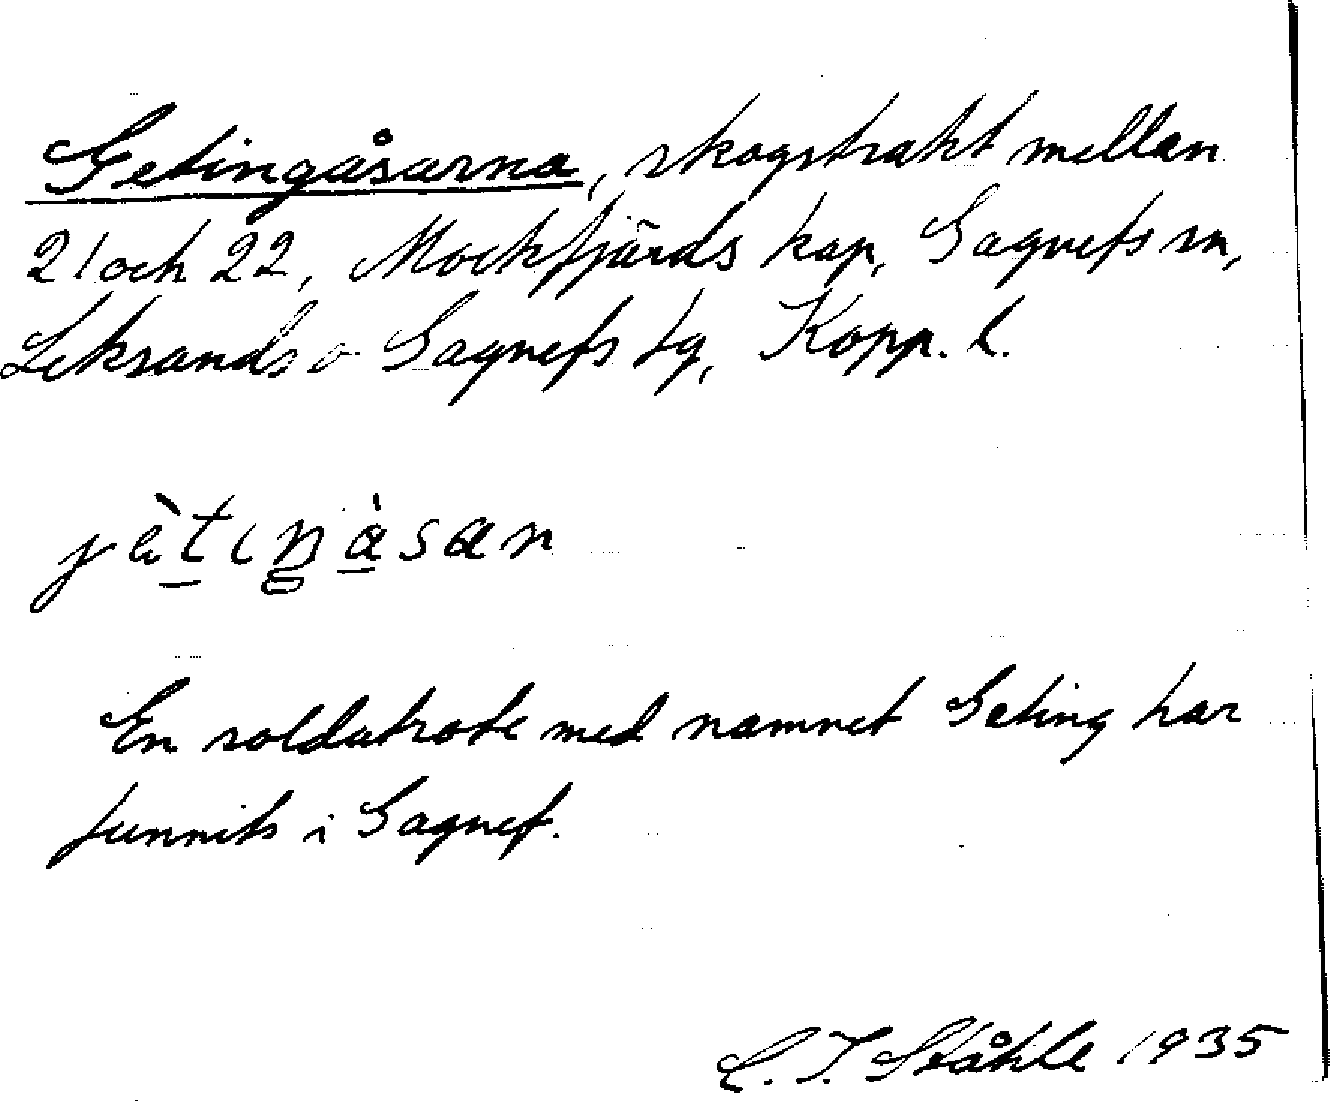 Getingåsarna, skogstrakt mellan
21 och 22, Mockfjärds kap, Gagnefs sn,
Leksands o Gagnefs tg, Kopp. l.
En soldatrote med namnet Geting har
funnits i Gagnef.
C. I. Ståhle 1935